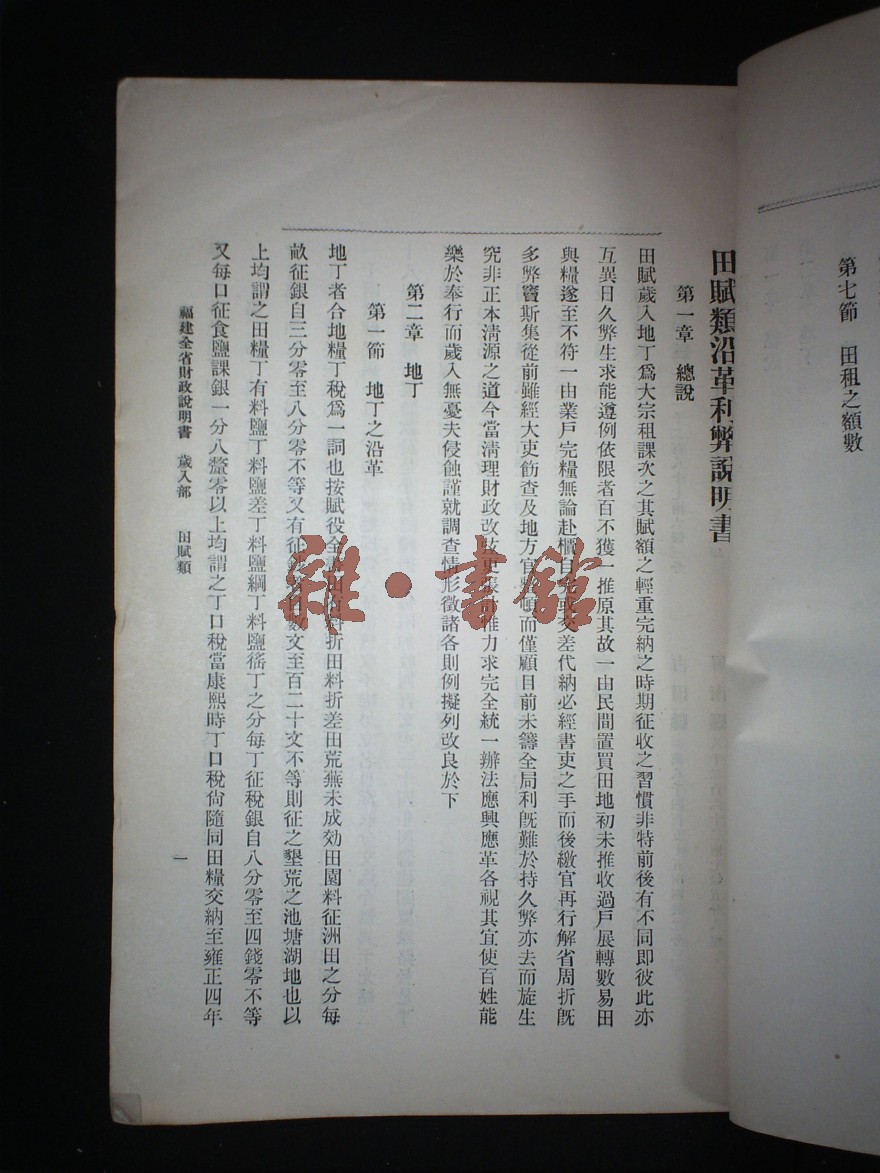 第七節　田租之額數
田賦類沿革利弊說明書
第一章　總說
田賦歲入地丁爲大宗租課次之其賦額之輕重完納之時期征收之習慣非特前後有不同即彼此亦
互異日久弊生求能遵例依限者百不獲一推原其故一由民間置買田地初未推收過戶展轉數易田
與糧遂至不符一由業戶完糧無論赴櫃自完或交差代納必經書吏之手而後繳官再行解省周折旣
多弊竇斯集從前雖經大吏飭查及地方官整頓而僅顧目前未籌全局利旣難於持久弊亦去而旋生
究非正本淸源之道今當淸理財政改弦更張計惟力求完全統一辦法應興應革各視其宜使百姓能
樂於奉行而歲入無憂夫侵蝕謹就調查情形徵諸各則例擬列改良於下
第二章　地丁
第一節　地丁之沿革
地丁者合地糧丁稅爲一詞也按賦役全書田有料折田料折差田荒蕪未成効田園料征洲田之分每
畝征銀自三分零至八分零不等又有征錢數文至百二十文不等則征之墾荒之池塘湖地也以
上均謂之田糧丁有料鹽丁料鹽差丁料鹽綱丁料鹽徭丁之分每丁征稅銀自八分零至四錢零不等
又每口征食鹽課銀一分八釐零以上均謂之丁口稅當康熙時丁口稅尙隨同田糧交納至雍正四年
福建全省財政說明書　歲入部　田賦類　一
雜·書館